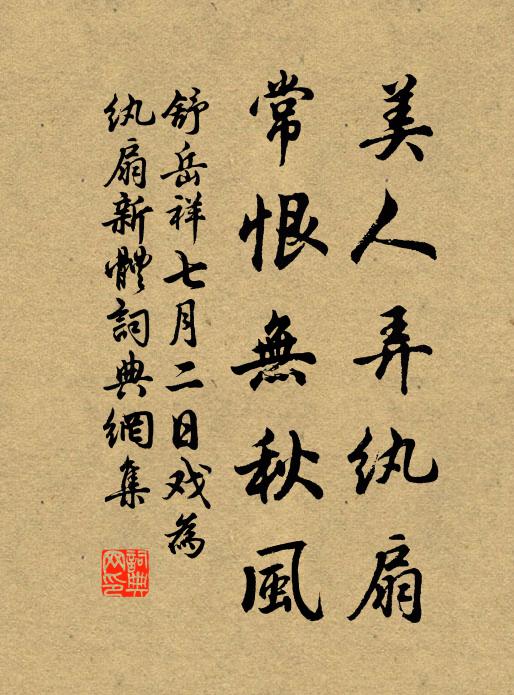 美人弄纨扇
常恨無秋風
舒岳祥七月二日戏為
纨扇新體詞典網集
詞典网印